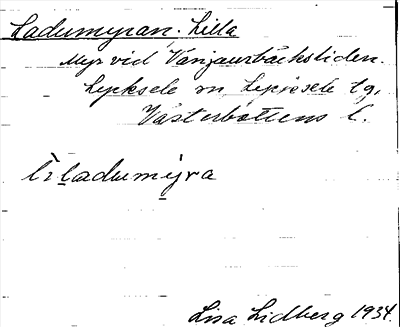 Ladumyran. Lilla
Myr vid Vänjaurbäcksliden.
Lycksele sn, Lycksele tg,
Västerbottens l.
ladumýra
Lisa Lidberg 1934.